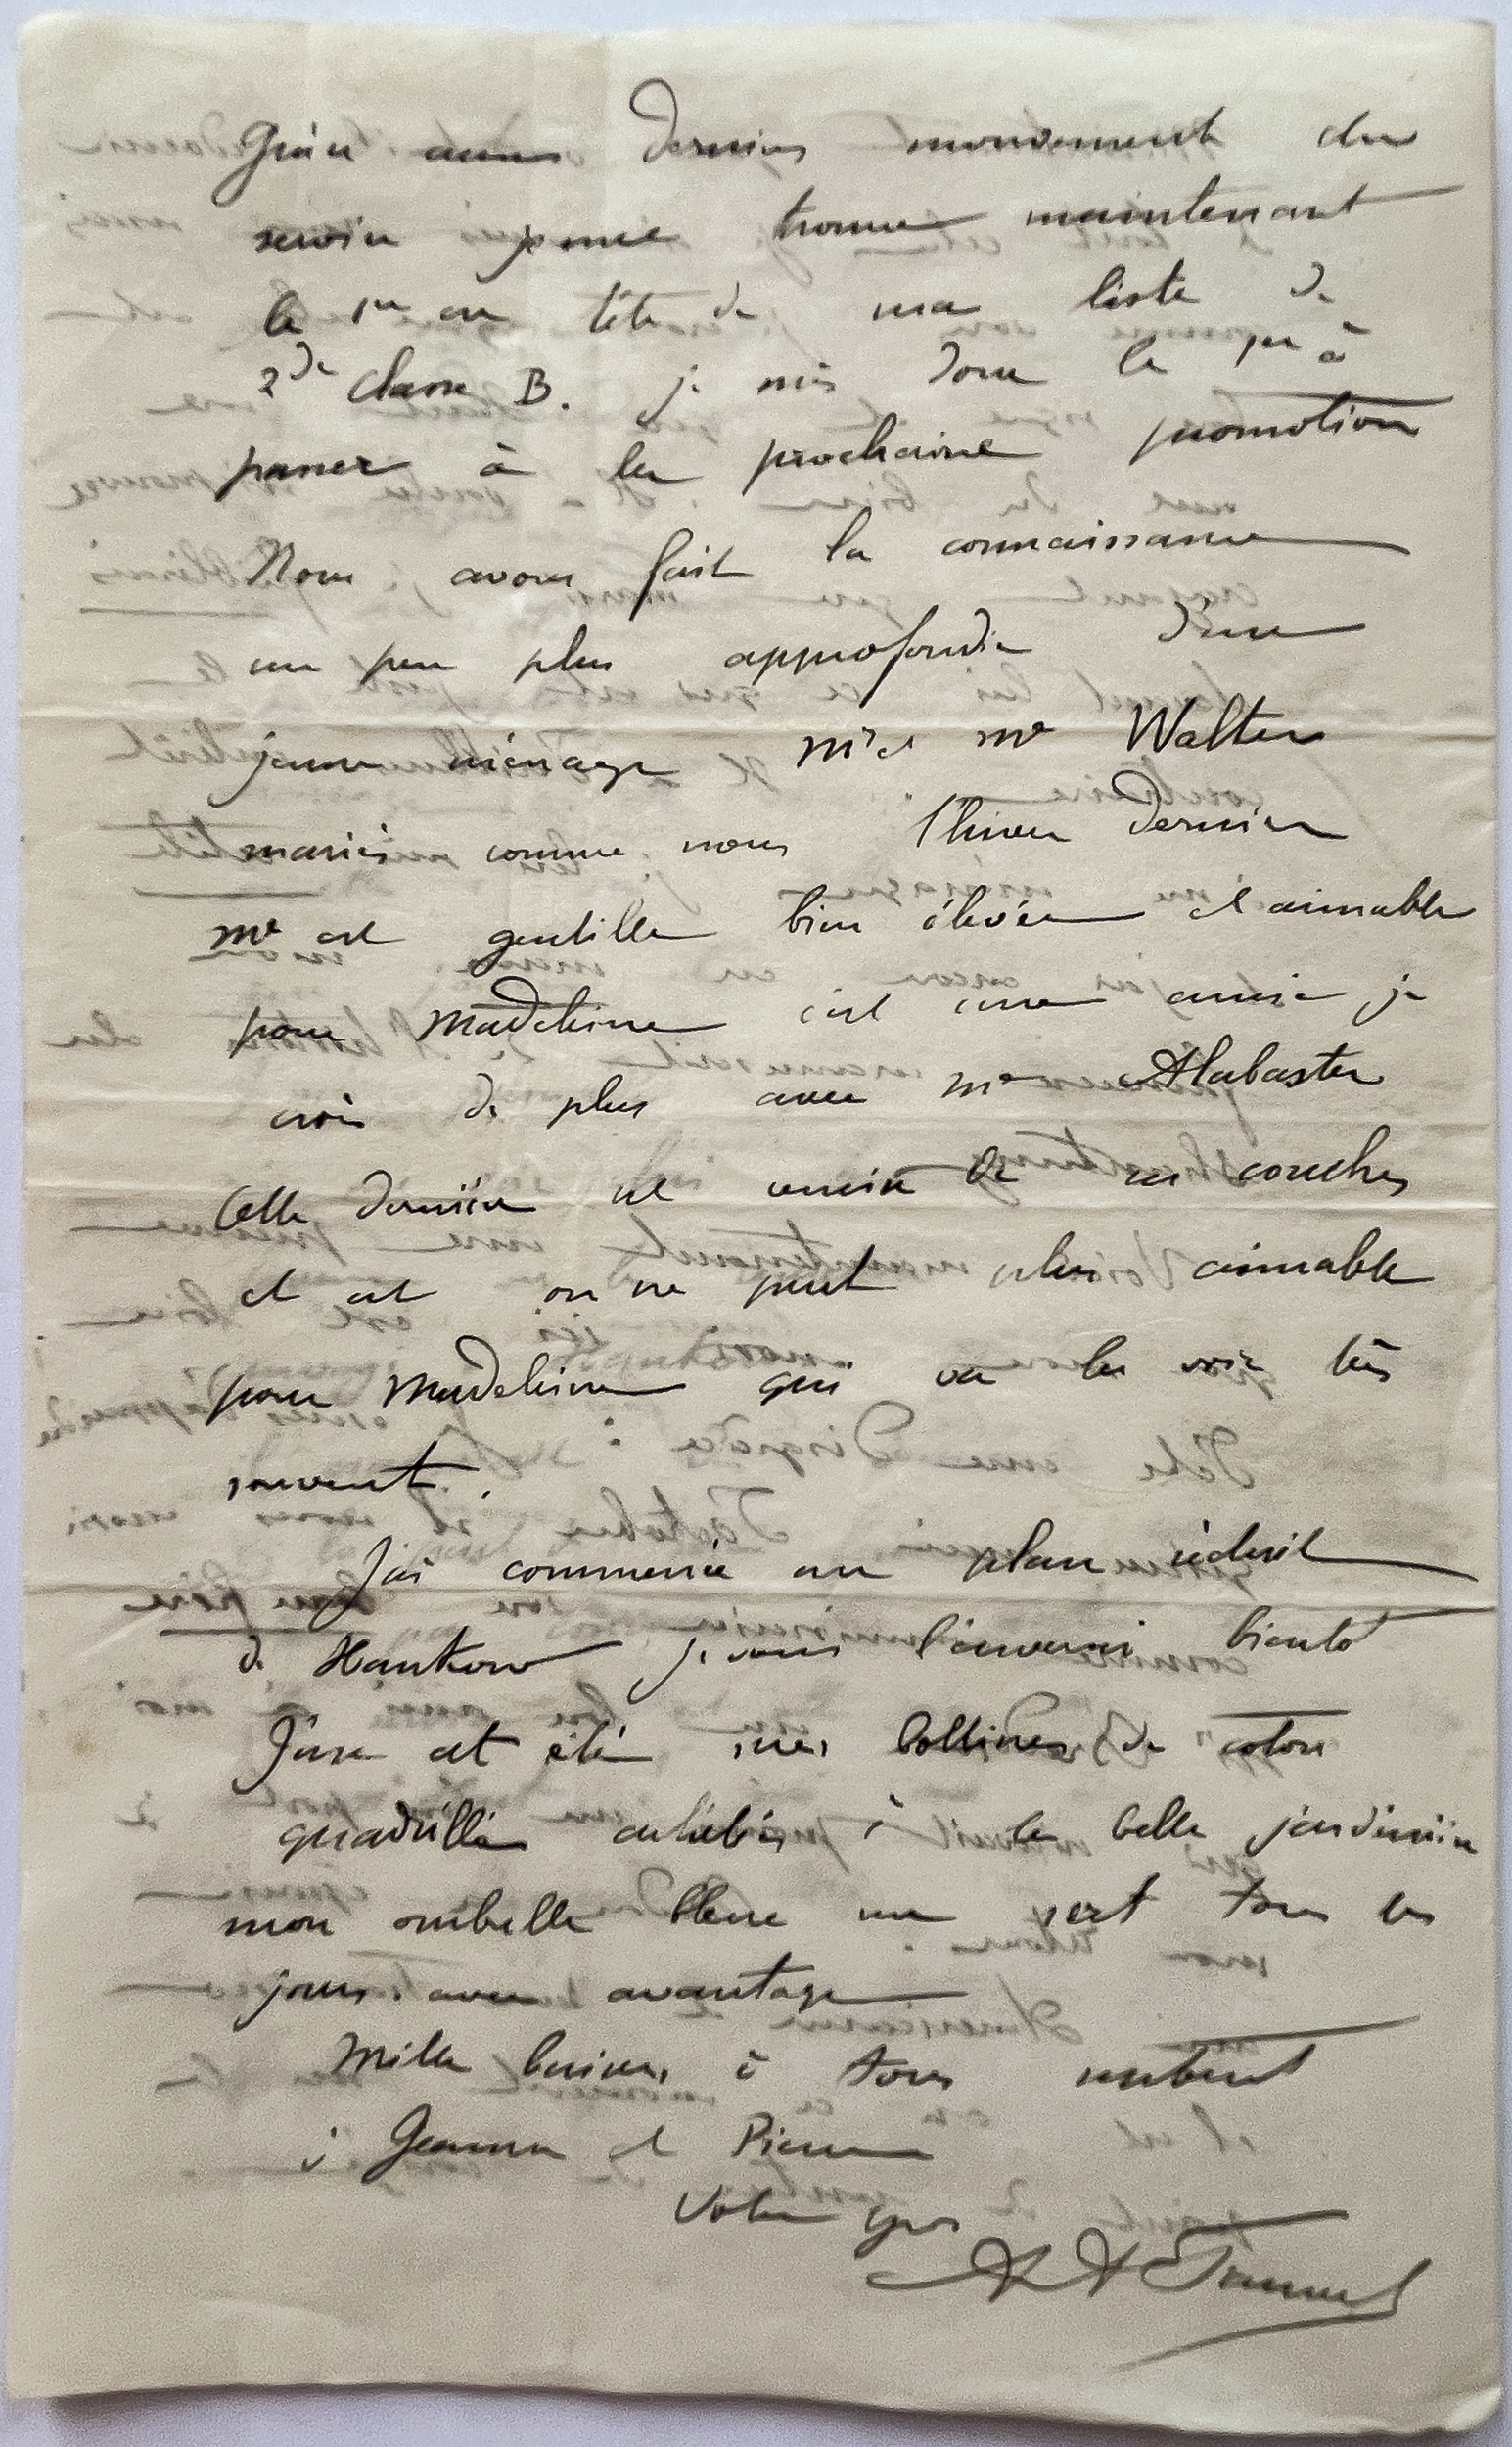 Grâce aux derniers mouvements du
service je me trouve maintenant
le 1er en tête de ma liste de
2de classe B. je suis donc le 1er à
passer à la prochaine promotion
Nous avons fait la connaissance
un peu plus approfondie d'un
jeune ménage Mr et Me Walter
mariés comme nous l'hiver dernier
Me est gentille bien élevée et aimable
pour Madeleine c'est une amie je
crois de plus avec Me Alabaster
Cette dernière est remise de ses couches
et est on ne peut plus aimable
pour Madeleine qui va la voir très
souvent.
J'ai commencé un plan réduit
de Hankow je vous l'enverrai bientôt
J'use cet été mes bottines de coton
quadrillé achetées à la belle jardinière
mon ombrelle bleue me sert tous les
jours avec avantage
Mille baisers à tous surtout
à Jeanne et Pierre
Votre gros